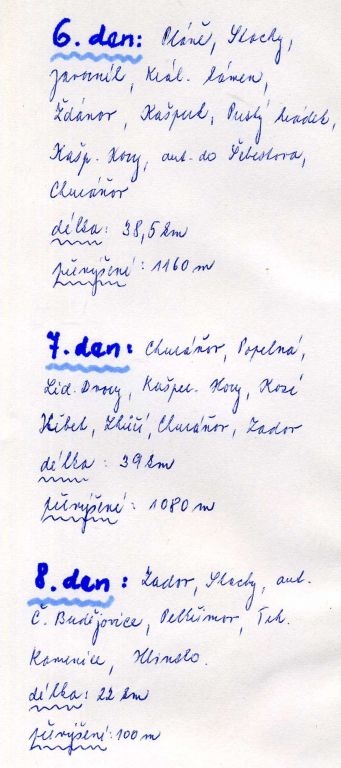 6. den: Pláně, Stachy,
Javorník, Král. kámen,
Ždánov, Kašperk, Pustý hrádek,
Kašp. Hory, aut. do Šebestova,
Churáňov
délka: 38,5 km
převýšení: 1160 m
7. den: Churáňov, Popelná,
Lid. Dvory, Kašper. Hory, Kozí
Hřbet, Zhůří, Churáňov, Zador
délka: 39 km
převýšení: 1080 m
8. den: Zador, Stachy, aut.
Č. Budějovice, Pelhřimov, Trh.
Kamenice, Hlinsko.
délka: 22 km
převýšení: 100 m